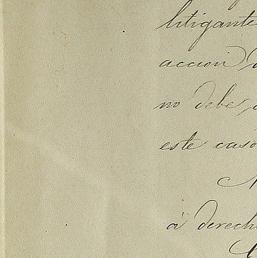 litigante
accion
no debe,
este caso
á derech